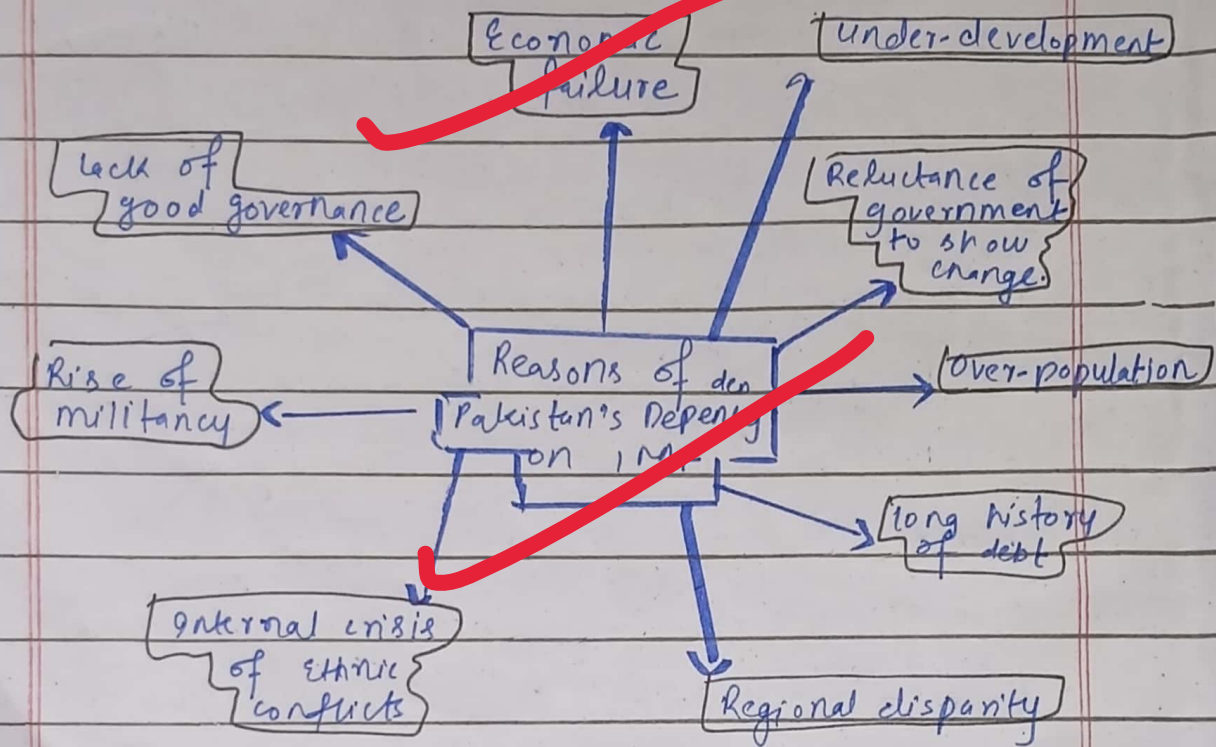 Economic
failure
Under-development
Lack of
good governance
Reluctance of
government
to show
change.
Reasons of
Pakistan's Depen den cy
on IMF
Rise of
militancy
Over-population
Long history
of debt
Internal crisis
of Ethnic
conflicts
Regional disparity